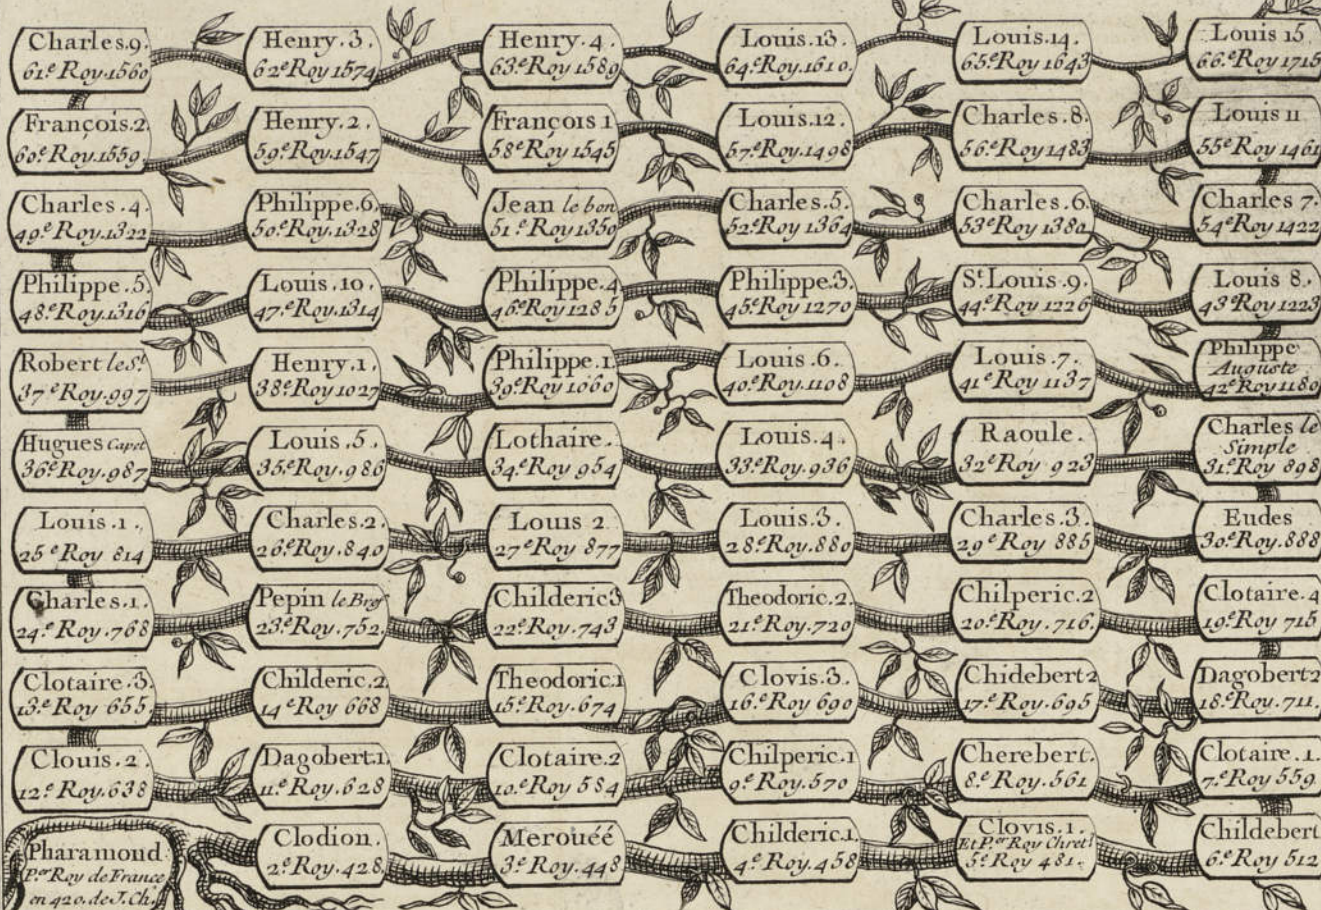 Charles.9.
61e Roy.1560
Henry.3.
62e Roy 1574
Henry.4.
63.e Roy 1589
Louis.13.
64.e Roy.1610.
Louis.14.
65e Roy 1643
Louis 15.
66.e Roy 1715
François.2.
60e. Roy.1559.
Henry.2.
59e. Roy.1547
François 1
58e Roy 1545
Louis.12.
57.e Roy.1498
Charles.8.
56.e Roy 1483
Louis 11
55e Roy 1461
Charles.4.
49e. Roy.1322
Philippe.6.
50.e Roy.1328
Jean le bon
51.e Roy 1350
Charles.5.
52e Roy 1364
Charles.6.
53e Roy 1380
Charles 7.
54e Roy 1422
Philippe.5.
48e. Roy.1316
Louis.10.
47.e Roy.1314
Philippe.4
46e Roy 1285
Philippe.3.
45e. Roy 1270
St. Louis.9.
44e. Roy 1226
Louis 8.
43e Roy 1223
Robert le St.
37e Roy.997
Henry.1.
38e Roy 1027
Philippe.1.
39e. Roy 1060
Louis.6.
40e. Roy.1108
Louis.7.
41e Roy 1137
Philippe
Auguste
42e Roy 1180
Hugues Capet
36e. Roy.987
Louis.5.
35.e Roy.986
Lothaire.
34e. Roy 954
Louis.4.
33e. Roy.936
Raoule.
32e Roy 923
Charles le
Simple
31e. Roy 898
Louis.1.
25e Roy 814
Charles.2.
26.e Roy.840
Louis 2
27e Roy 877
Louis.3.
28e. Roy.880
Charles.3.
29e Roy 885
Eudes
30e. Roy.888
Charles.1.
24.e Roy.768
Pepin le Bref
23e. Roy.752.
Childeric 3
22e Roy.743
Theodoric.2.
21e. Roy.720
Chilperic.2
20e. Roy.716.
Clotaire.4
19e. Roy 715
Clotaire.3
13.e Roy 655.
Childeric.2
14e Roy 668
Theodoric.1
15e. Roy.674
Clovis.3.
16.e Roy 690
Chidebert 2
17.e Roy.695
Dagobert 2
18e. Roy.711.
Clouis.2.
12e. Roy.638
Dagobert.1.
11.e Roy.628
Clotaire.2
10.e Roy 584
Chilperic.1
9e. Roy.570
Cherebert.
8.e Roy.561
Clotaire.1.
7.e Roy 559
Pharamond
P.er Roy de France
en 420. de J. Ch.
Clodion.
2e. Roy.428.
Merouéé
3e. Roy.448
Childeric.1.
4e. Roy.458
Clovis.1.
Et P.er Roy Chret.
5e Roy 481.
Childebert
6.e Roy 512